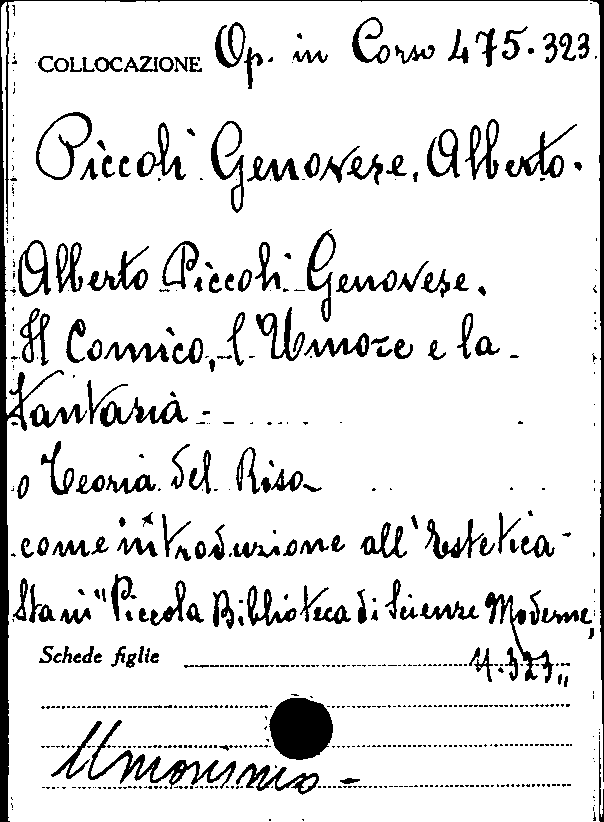 COLLOCAZIONE Op. in Corso 475.323
Piccoli Genovese, Alberto.
Alberto Piccoli Genovese.
Il Comico, l'Umore e la
Fantasia -
o Teoria del Riso
come introduzione all'Estetica
Sta in "Piccola Biblioteca di Scienze Moderne,
N. 323"
Schede figlie
Umorismo -